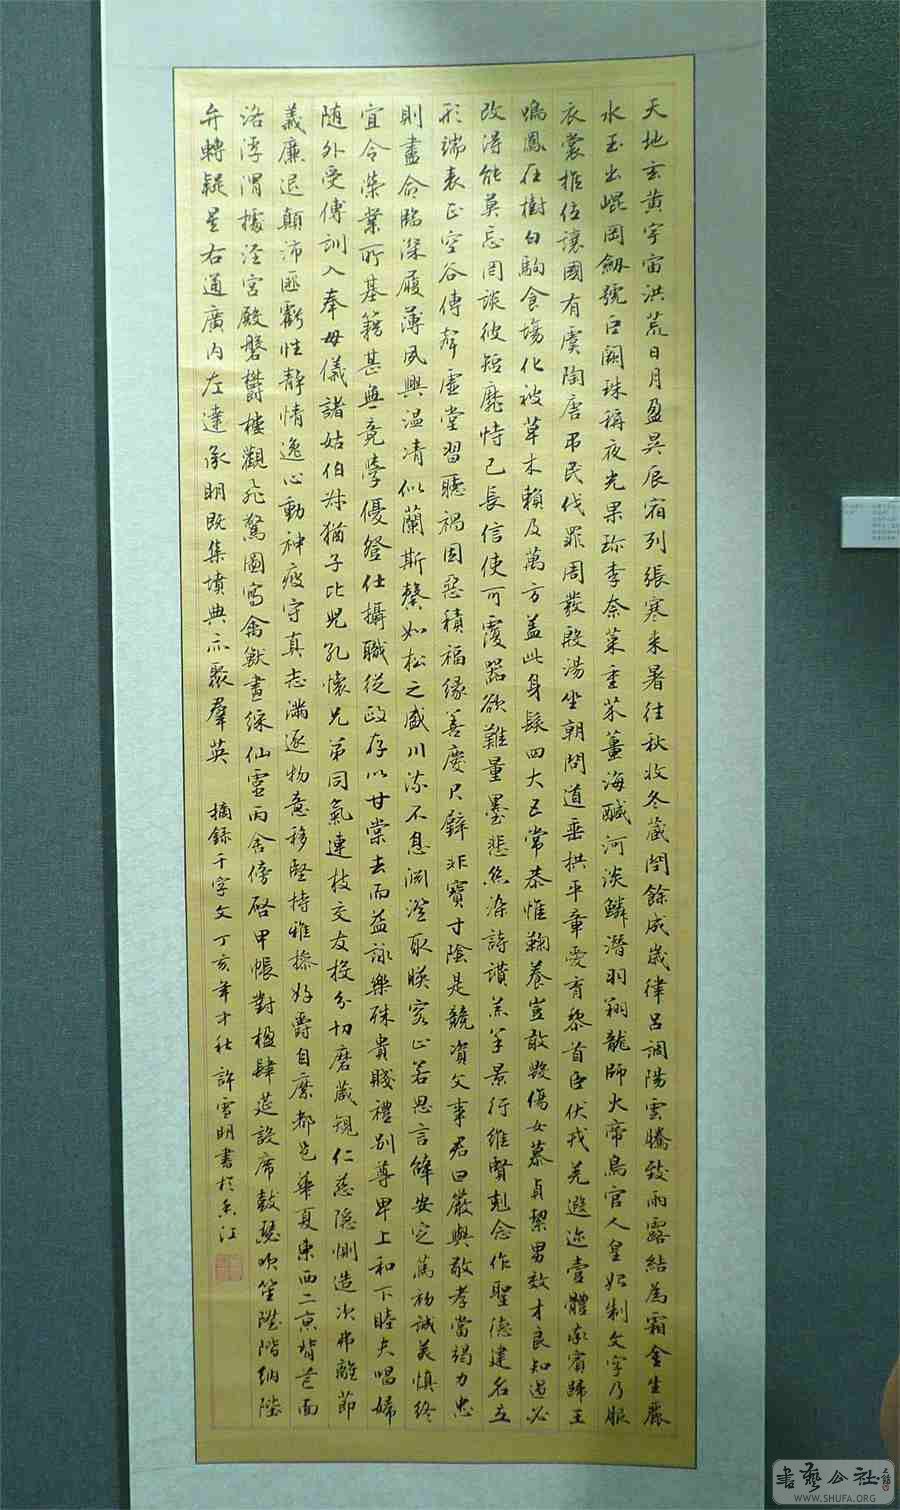 天地玄黄宇宙洪荒日月盈昃辰宿列張寒来暑往秋收冬藏閏餘成歲律呂調陽雲騰致雨露結為霜金生麗
水玉出崐岡劒號巨闕珠稱夜光果珎李奈菜重芥薑海醎河淡鱗潛羽翔龍師火帝鳥官人皇始制文字乃服
衣裳推位讓國有虞陶唐弔民伐罪周發殷湯坐朝問道垂拱平章愛育黎首臣伏戎羌遐迩壹體率賓歸王
鳴鳳在樹白駒食場化被草木賴及萬方蓋此身髮四大五常恭惟鞠養豈敢毀傷女慕貞絜男效才良知過必
改得能莫忘罔談彼短靡恃己長信使可覆器欲難量墨悲絲染詩讚羔羊景行維賢剋念作聖德建名立
形端表正空谷傳聲虛堂習聽禍因惡積福緣善慶尺璧非寶寸陰是競資父事君曰嚴與敬孝當竭力忠
則盡命臨深履薄夙興温凊似蘭斯馨如松之盛川流不息淵澄取暎容止若思言辭安定篤初誠美慎終
宜令榮業所基籍甚無竟學優登仕攝職從政存以甘棠去而益詠樂殊貴賤禮別尊卑上和下睦夫唱婦
随外受傅訓入奉母儀諸姑伯叔猶子比兒孔懷兄弟同氣連枝交友投分切磨箴規仁慈隱惻造次弗離節
義廉退顛沛匪虧性静情逸心動神疲守真志滿逐物意移堅持雅操好爵自縻都邑華夏東西二京背芒面
洛浮渭據涇宮殿磐欝樓觀飛驚圖寫禽獸畫綵仙靈丙舍傍啟甲帳對楹肆筵設席鼓瑟吹笙陞階納陛
弁轉疑星右通廣内左達承明既集墳典亦聚羣英 摘錄千字文丁亥年中秋許雲明書於香江
書藝公社
WWW.SHUFA.ORG